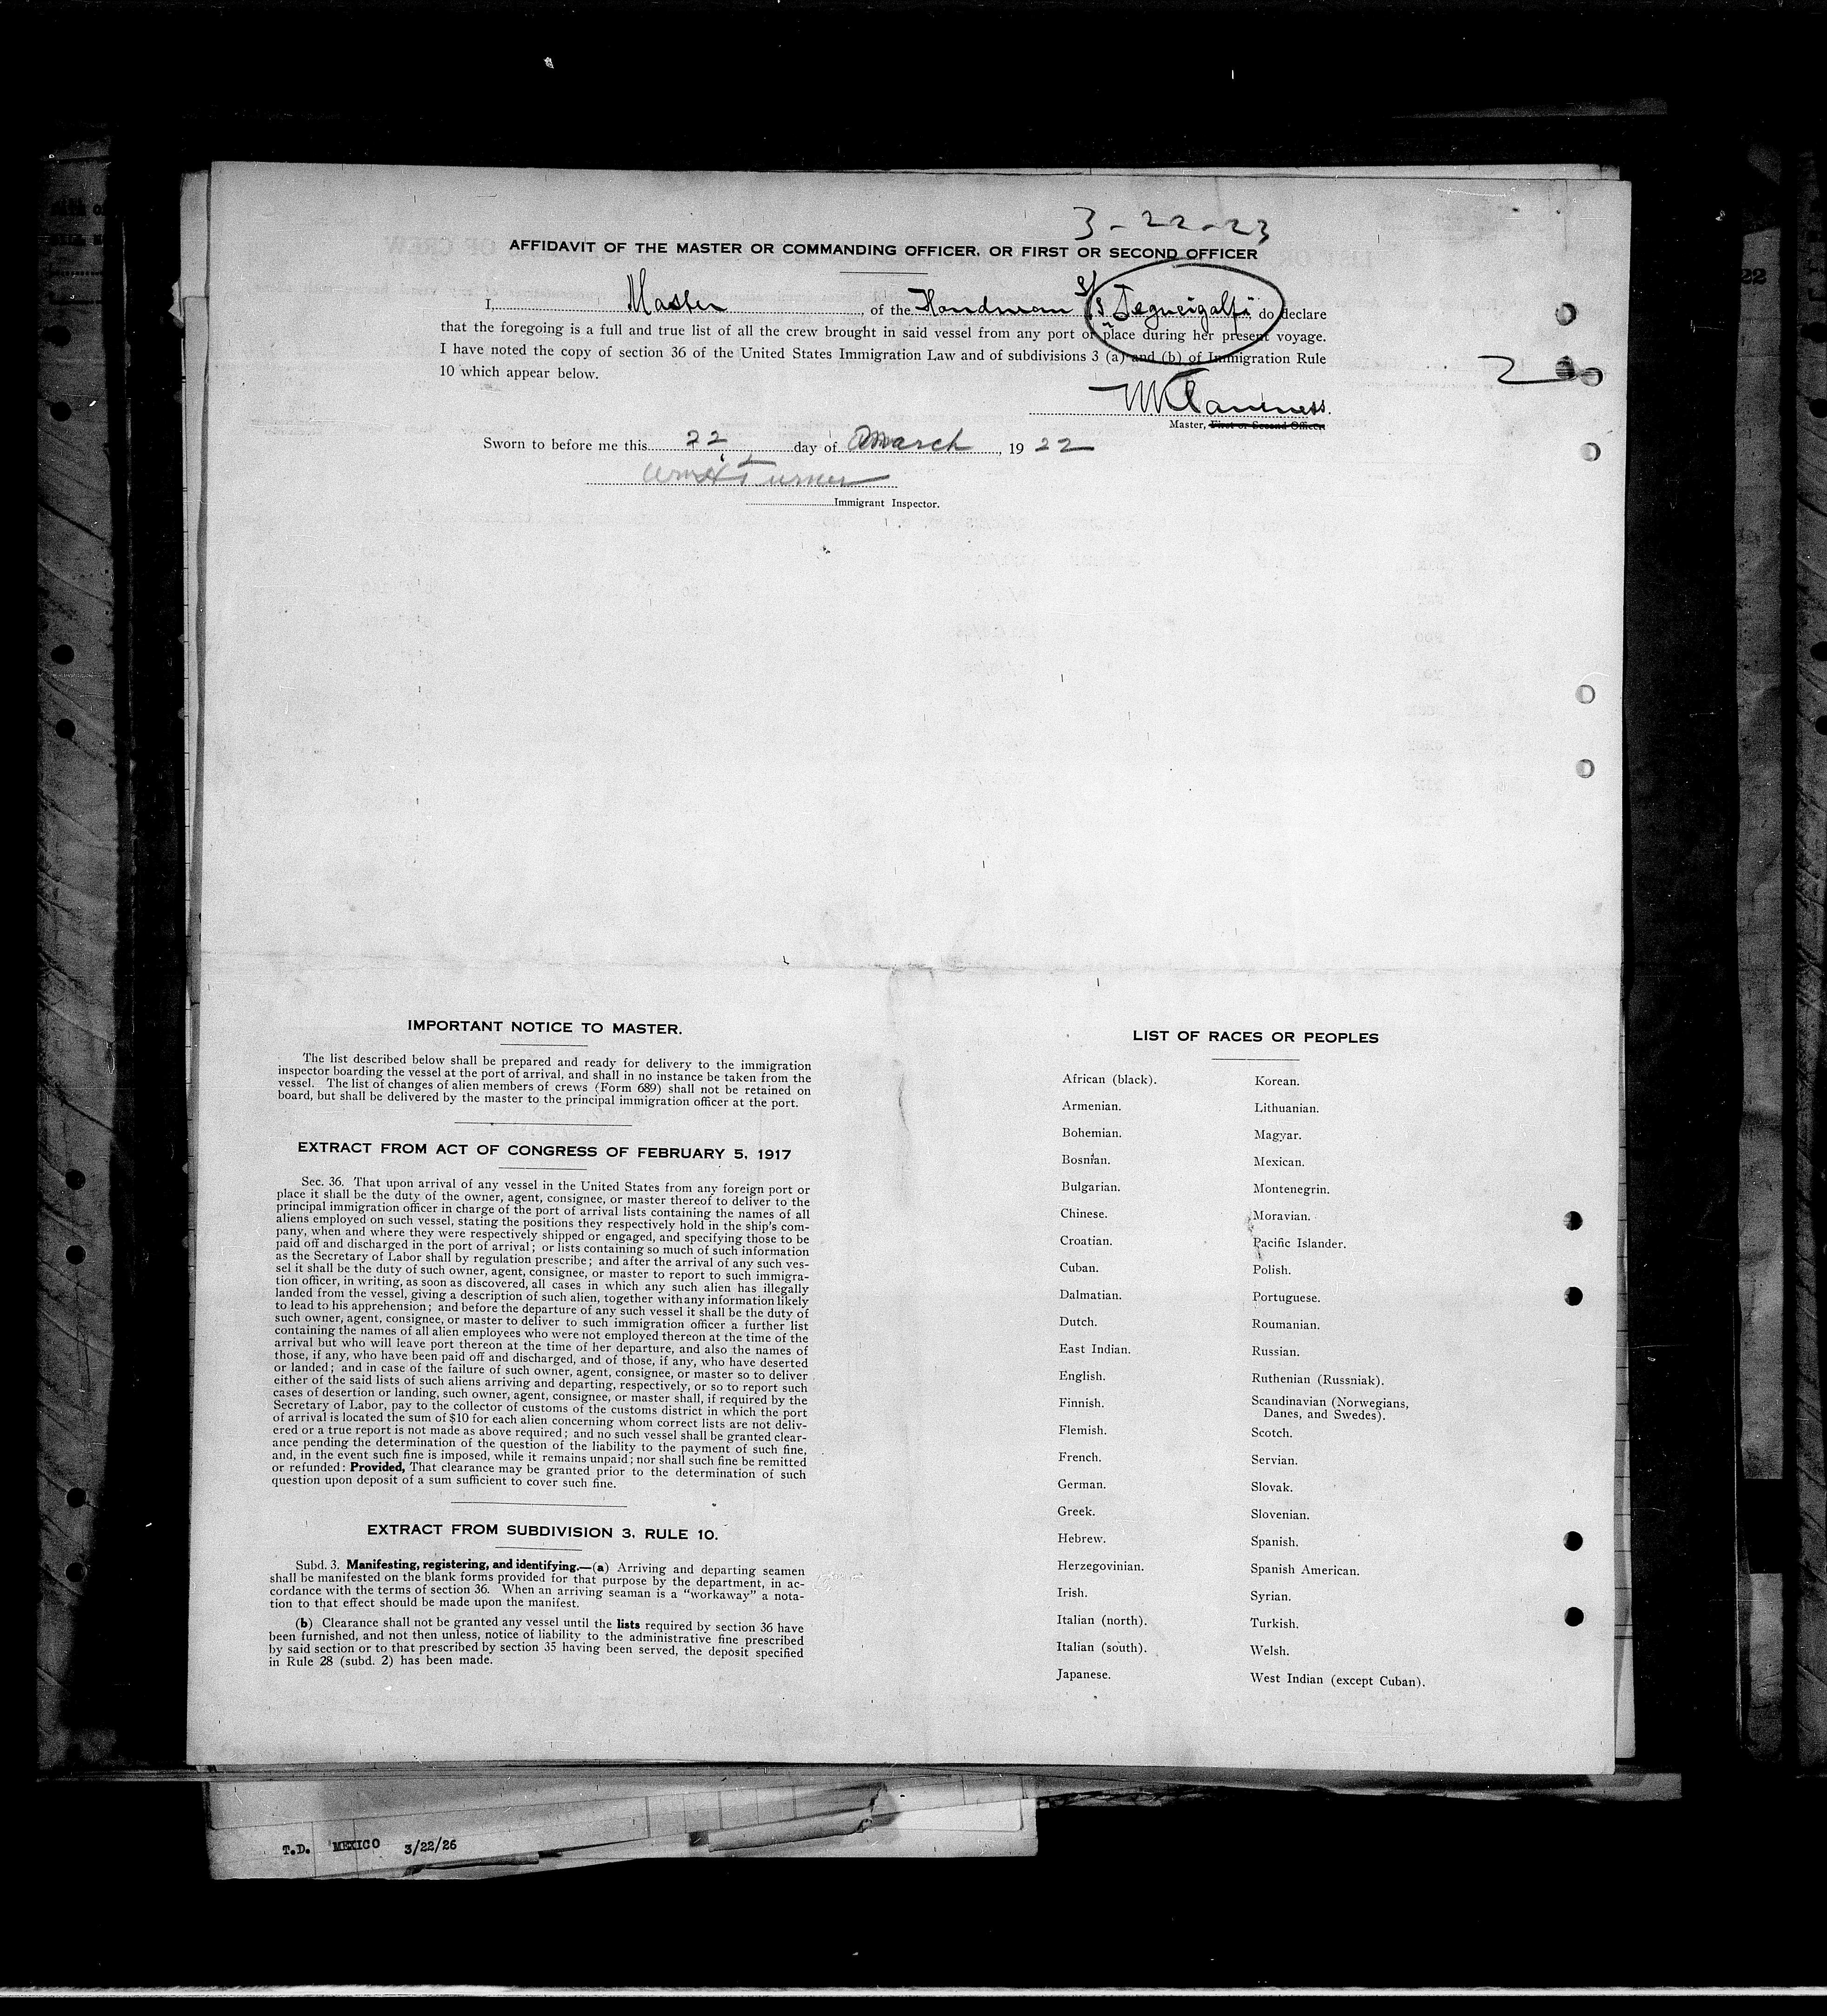 3-22-23
AFFIDAVIT OF THE MASTER OR COMMANDING OFFICER, OR FIRST OR SECOND OFFICER
I, Master, of the S/S "Tegucigalpa", do declare
that the foregoing is a full and true list of all the crew brought in said vessel from any port or place during her present voyage.
I have noted the copy of section 36 of the United States Immigration Law and of subdivisions 3 (a) and (b) of Immigration Rule
10 which appear below.
2
Master, First or Second Officer.
Sworn to before me this 22 day of March, 1922
Wm H Turner
Immigrant Inspector.
22
IMPORTANT NOTICE TO MASTER.
The list described below shall be prepared and ready for delivery to the immigration
inspector boarding the vessel at the port of arrival, and shall in no instance be taken from the
vessel. The list of changes of alien members of crews (Form 689) shall not be retained on
board, but shall be delivered by the master to the principal immigration officer at the port.
EXTRACT FROM ACT OF CONGRESS OF FEBRUARY 5, 1917
Sec. 36. That upon arrival of any vessel in the United States from any foreign port or
place it shall be the duty of the owner, agent, consignee, or master thereof to deliver to the
principal immigration officer in charge of the port of arrival lists containing the names of all
aliens employed on such vessel, stating the positions they respectively hold in the ship's com-
pany, when and where they were respectively shipped or engaged, and specifying those to be
paid off and discharged in the port of arrival; or lists containing so much of such information
as the Secretary of Labor shall by regulation prescribe; and after the arrival of any such ves-
sel it shall be the duty of such owner, agent, consignee, or master to report to such immigra-
tion officer, in writing, as soon as discovered, all cases in which any such alien has illegally
landed from the vessel, giving a description of such alien, together with any information likely
to lead to his apprehension; and before the departure of any such vessel it shall be the duty of
such owner, agent, consignee, or master to deliver to such immigration officer a further list
containing the names of all alien employees who were not employed thereon at the time of the
arrival but who will leave port thereon at the time of her departure, and also the names of
those, if any, who have been paid off and discharged, and of those, if any, who have deserted
or landed; and in case of the failure of such owner, agent, consignee, or master so to deliver
either of the said lists of such aliens arriving and departing, respectively, or so to report such
cases of desertion or landing, such owner, agent, consignee, or master shall, if required by the
Secretary of Labor, pay to the collector of customs of the customs district in which the port
of arrival is located the sum of $10 for each alien concerning whom correct lists are not deliv-
ered or a true report is not made as above required; and no such vessel shall be granted clear-
ance pending the determination of the question of the liability to the payment of such fine,
and, in the event such fine is imposed, while it remains unpaid; nor shall such fine be remitted
or refunded: Provided, That clearance may be granted prior to the determination of such
question upon deposit of a sum sufficient to cover such fine.
EXTRACT FROM SUBDIVISION 3, RULE 10.
Subd. 3. Manifesting, registering, and identifying.—(a) Arriving and departing seamen
shall be manifested on the blank forms provided for that purpose by the department, in ac-
cordance with the terms of section 36. When an arriving seaman is a "workaway" a nota-
tion to that effect should be made upon the manifest.
(b) Clearance shall not be granted any vessel until the lists required by section 36 have
been furnished, and not then unless, notice of liability to the administrative fine prescribed
by said section or to that prescribed by section 35 having been served, the deposit specified
in Rule 28 (subd. 2) has been made.
LIST OF RACES OR PEOPLES
African (black).
Armenian.
Bohemian.
Bosnian.
Bulgarian.
Chinese.
Croatian.
Cuban.
Dalmatian.
Dutch.
East Indian.
English.
Finnish.
Flemish.
French.
German.
Greek.
Hebrew.
Herzegovinian.
Irish.
Italian (north).
Italian (south).
Japanese.
Korean.
Lithuanian.
Magyar.
Mexican.
Montenegrin.
Moravian.
Pacific Islander.
Polish.
Portuguese.
Roumanian.
Russian.
Ruthenian (Russniak).
Scandinavian (Norwegians,
Danes, and Swedes).
Scotch.
Servian.
Slovak.
Slovenian.
Spanish.
Spanish American.
Syrian.
Turkish.
Welsh.
West Indian (except Cuban).
T.D. MEXICO 3/22/26